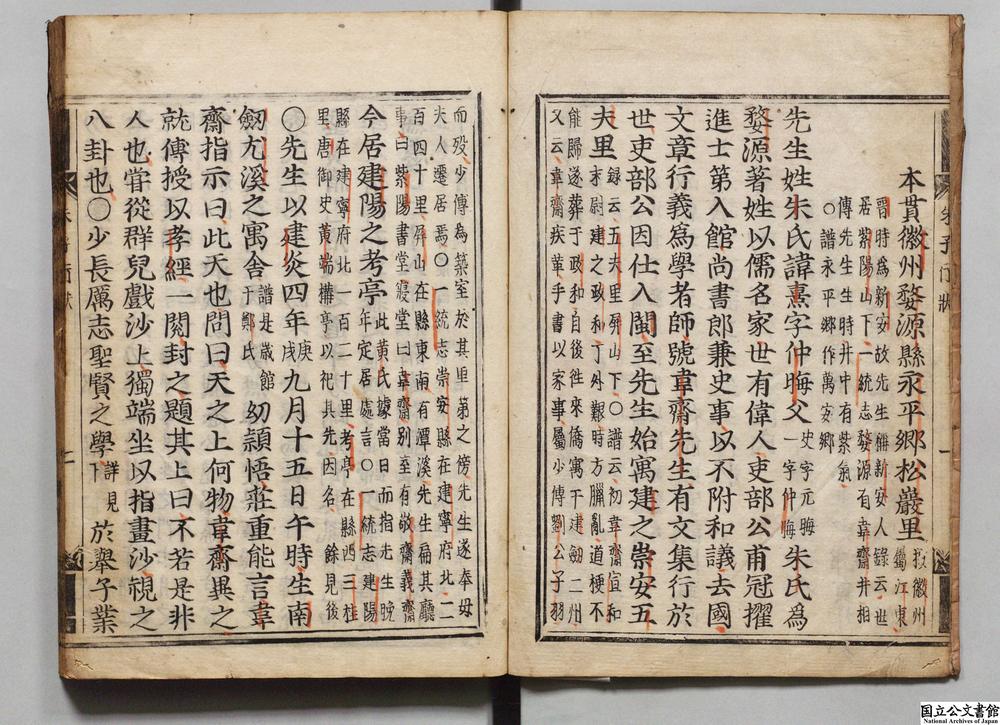 本貫徽州婺源縣永平鄉松巖里
按徽州屬江東
晋時爲新安故先生稱新安人錄云世
居紫陽山下一統志婺源有韋齋井相
傳先生生時井中有紫氣
○譜永平鄉作萬安鄉
先生姓朱氏諱熹字仲晦父
史字元晦
一字仲晦
朱氏爲
婺源著姓以儒名家世有偉人吏部公甫冠擢
進士第入館尚書郎兼史事以不附和議去國
文章行義爲學者師號韋齋先生有文集行於
世吏部公因仕入閩至先生始寓建之崇安五
夫里
錄云五夫里屏山下○譜云初韋齋宣和
末尉建之政和丁外艱時方臘亂道梗不
能歸遂葬于政和自後徃來僑寓于建劒二州
又云韋齋疾革手書以家事屬少傅劉公子羽
朱子行狀
一
而歿少傅為築室於其里第之傍先生遂奉母
夫人遷居焉○一統志崇安縣在建寧府北二
百四十里屏山在縣東南有潭溪先生扁其廳
事曰紫陽書堂寢堂曰韋齋別至有敬齋義齋
今居建陽之考亭
此黃氏據當日而指先生晚
年定居處言○一統志建陽
縣在建寧府北一百二十里考亭在縣西三桂
里唐御史黃端構亭以祀其先因名
餘見後
○先生以建炎四年
庚
戌
九月十五日午時生南
劒尤溪之寓舍
譜是歲館
于鄭氏
幼穎悟莊重能言韋
齋指示曰此天也問曰天之上何物韋齋異之
就傅授以孝經一閱封之題其上曰不若是非
人也甞從群兒戲沙上獨端坐以指畫沙視之
八卦也○少長厲志聖賢之學
詳見
下
於舉子業
國立公文書館
National Archives of Japan